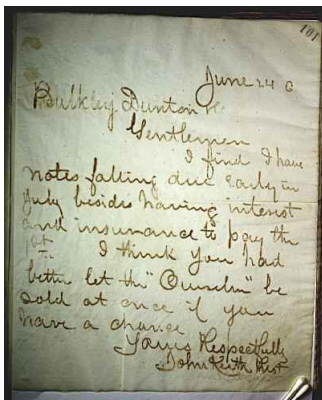 101
June 24
Bulkley Dunton
Gentlemen
I find I have
notes falling due early in
July besides having interest
and insurance to pay the
1st. I think you had
better let the " " be
sold at once if you
have a chance
Yours Respectfully
John Keith